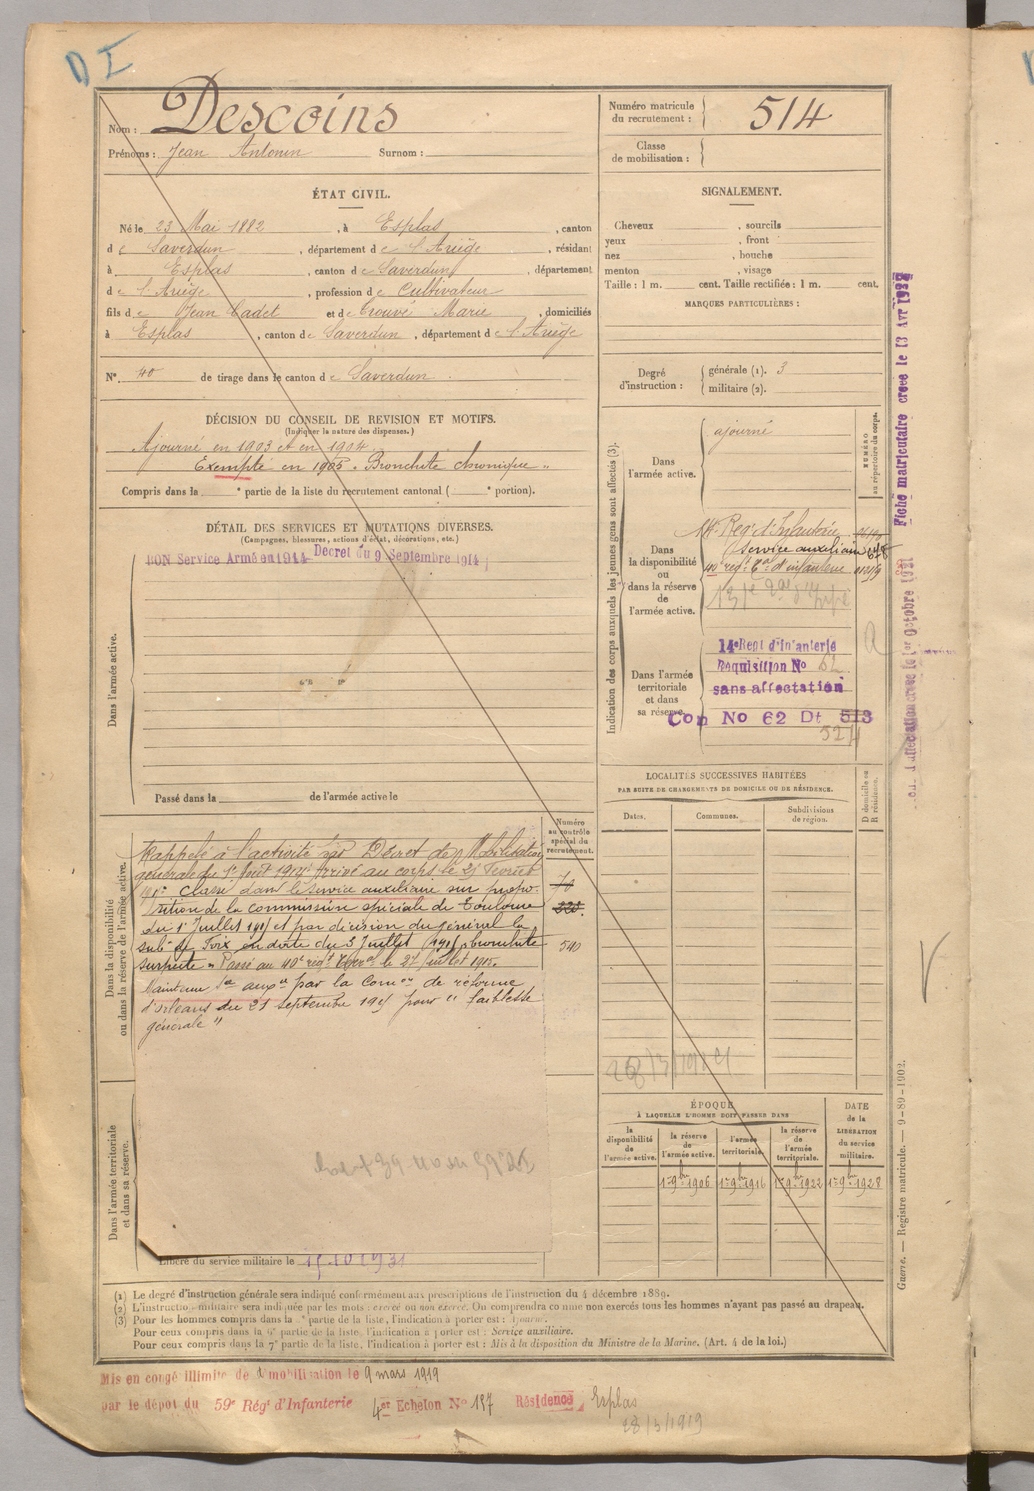 D I
Nom : Descoins
Prénoms : Jean Antonin Surnom :
ÉTAT CIVIL.
Né le 23 Mai 1882, à Esplas, canton
de Saverdun, département de l'Ariège, résidant
à Esplas, canton de Saverdun, département
de l'Ariège, profession de Cultivateur
fils de Jean Cadet et de Trouvé Marie, domiciliés
à Esplas, canton de Saverdun, département de l'Ariège
N° 40 de tirage dans le canton de Saverdun.
DÉCISION DU CONSEIL DE REVISION ET MOTIFS.
(Indiquer la nature des dispenses.)
Ajourné en 1903 et en 1904
Exempté en 1905 « Bronchite chronique »
Compris dans la e partie de la liste du recrutement cantonal ( e portion).
DÉTAIL DES SERVICES ET MUTATIONS DIVERSES.
(Campagnes, blessures, actions d'éclat, décorations, etc.)
BON Service Armé en 1914 Décret du 9 Septembre 1914
Dans l'armée active.
Passé dans la de l'armée active le
Numéro
au contrôle
spécial du
recrutement.
Dans la disponibilité
ou dans la réserve de l'armée active.
Rappelé à l'activité Décret de Mobilisation
générale du 1er Août 1914 arrivé au corps le 25 Février
1915 classé dans le service auxiliaire sur propo-
sition de la commission spéciale de Toulouse
du 1er Juillet 1915 et par décision du général la
sub de Foix en date du 3 Juillet 1915 « bronchite
suspecte » Passé au 40e régt le 27 Juillet 1915.
Maintenu Sce auxre par la Comon de réforme
d'Orléans du 21 septembre 1915 pour " faiblesse
générale "
540
Dans l'armée territoriale
et dans sa réserve.
Libéré du service militaire le 15.10 1931
Numéro matricule
du recrutement : 514
Classe
de mobilisation :
SIGNALEMENT.
Cheveux , sourcils
yeux , front
nez , bouche
menton , visage
Taille : 1 m. cent. Taille rectifiée : 1 m. cent.
MARQUES PARTICULIÈRES :
Degré
d'instruction :
générale (1). 3
militaire (2).
Indication des corps auxquels les jeunes gens sont affectés (3).
NUMÉRO
au répertoire du corps.
Dans
l'armée active.
ajourné
Dans
la disponibilité
ou
dans la réserve
de
l'armée active.
14e Reg. d'Infanterie
Service auxiliaire 678
40 régt. d'infanterie
Dans l'armée
territoriale
et dans
sa réserve.
14e Regt d'Infanterie
Requisition No
sans affectation
Con No 62 Dt 513
LOCALITÉS SUCCESSIVES HABITÉES
PAR SUITE DE CHANGEMENTS DE DOMICILE OU DE RÉSIDENCE.
Dates. Communes. Subdivisions
de région.
D domicile ou
R résidence.
28/3/1919
ÉPOQUE
À LAQUELLE L'HOMME DOIT PASSER DANS
DATE
de la
LIBÉRATION
du service
militaire.
la
disponibilité
de
l'armée active.
la réserve
de
l'armée active.
l'armée
territoriale.
la réserve
de
l'armée
territoriale.
1er 9bre 1906 1er 9bre 1916 1er 9bre 1922 1er 9bre 1928
Fiche matriculaire creee le 13 Avr 193
Guerre. — Registre matricule. — 9-89-1902.
(1) Le degré d'instruction générale sera indiqué conformément aux prescriptions de l'instruction du 4 décembre 1889.
(2) L'instruction militaire sera indiquée par les mots : exercé ou non exercé. On comprendra comme non exercés tous les hommes n'ayant pas passé au drapeau.
(3) Pour les hommes compris dans la partie de la liste, l'indication à porter est : Ajourné.
Pour ceux compris dans la partie de la liste, l'indication à porter est : Service auxiliaire.
Pour ceux compris dans la 7e partie de la liste, l'indication à porter est : Mis à la disposition du Ministre de la Marine. (Art. 4 de la loi.)
Mis en congé illimité de démobilisation le 9 mars 1919
par le dépôt du 59e Régt d'Infanterie 4er Echelon N° 197 Résidence Esplas
28/3/1919